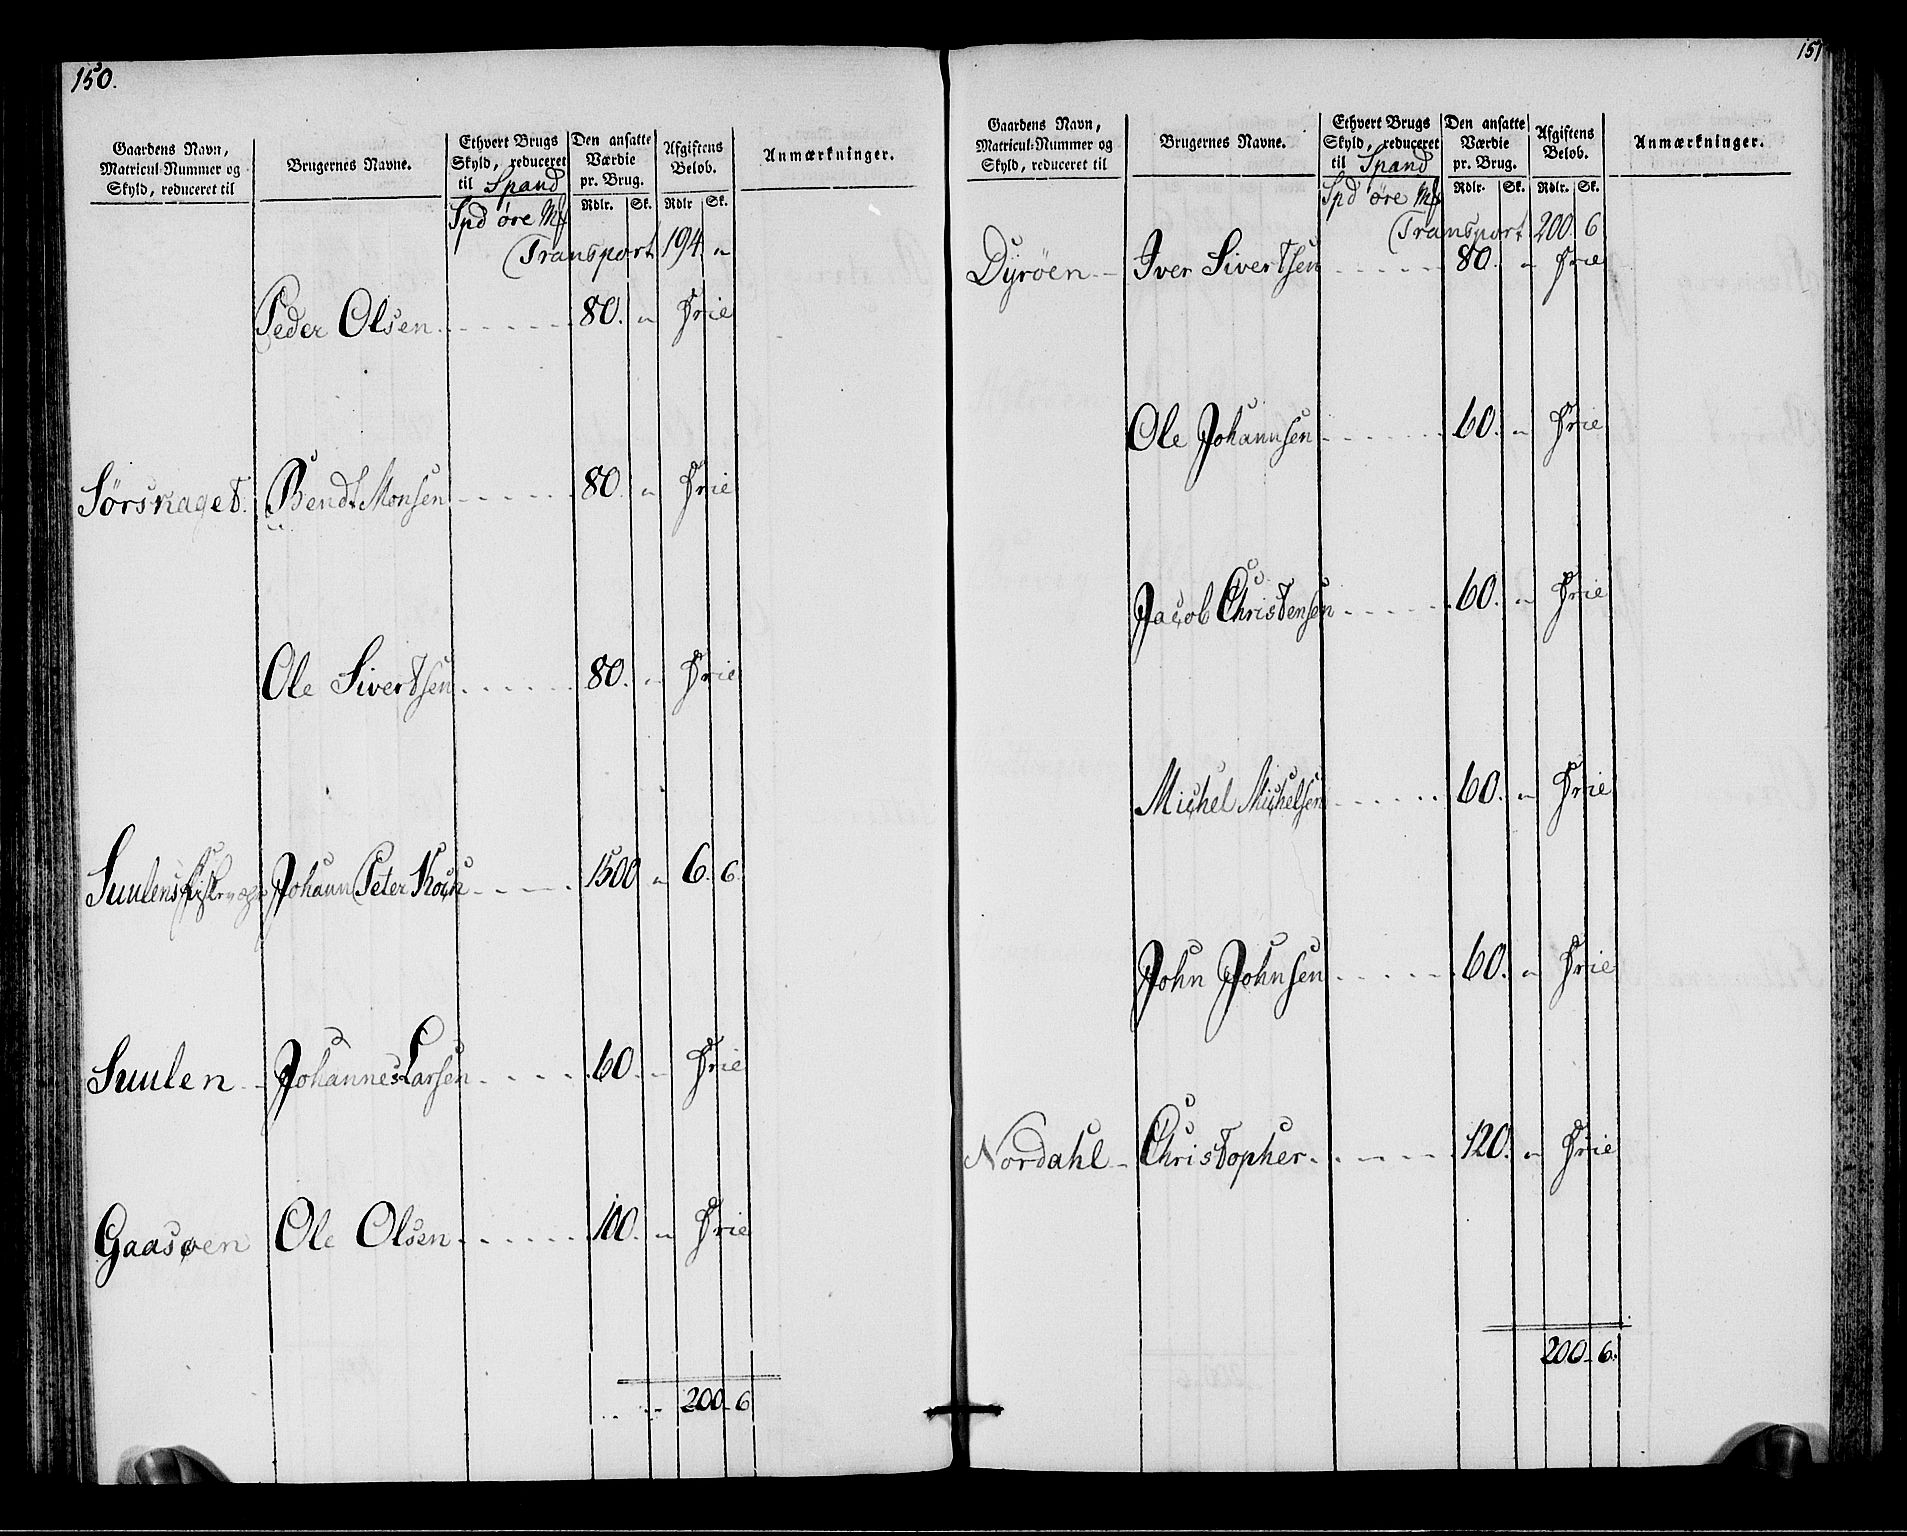 150.
Gaardens Navn, Matricul-Nummer og Skyld, reduceret til | Brugernes Navne. | Ethvert Brugs Skyld, reduceret til Spand | Den ansatte Værdie pr. Brug. | Afgiftens Belob. | Anmærkninger.
Spd øre Mk | Rdlr. | Sk. | Rdlr | Sk.
Transport 194. "
Peder Olsen 80. " Frie
Sørskaget. Bendt Monsen 80. " Frie
Ole Sivertsen 80. " Frie
Suulens Johann Peter Kock 1500 " 6. 6.
Suulen Johannes Larsen 60. " Frie
Gaasøen Ole Olsen 100. " Frie
200 6
151
Gaardens Navn, Matricul-Nummer og Skyld, reduceret til | Brugernes Navne. | Ethvert Brugs Skyld, reduceret til Spand | Den ansatte Værdie pr. Brug. | Afgiftens Belob. | Anmærkninger.
Spd øre Mk | Rdlr. | Sk. | Rdlr. | Sk.
Transport 200. 6
Dyrøen Iver Sivertsen 80. " Frie
Ole Johannsen 60. " Frie
Jacob Christensen 60. " Frie
Michel Michelsen 60. " Frie
John Johnsen 60. " Frie
Nordahl Christopher 120. " Frie
200 6.